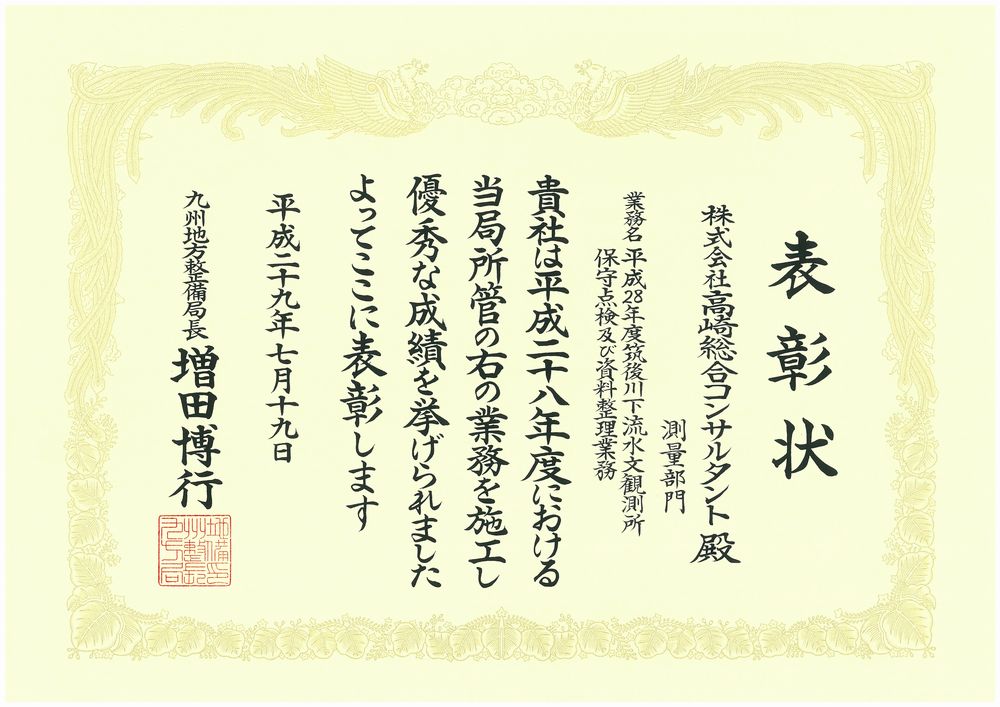 表彰状
株式会社高崎総合コンサルタント 殿
測量部門
業務名 平成28年度筑後川下流水文観測所
保守点検及び資料整理業務
貴社は平成二十八年度における
当局所管の右の業務を施工し
優秀な成績を挙げられました
よってここに表彰します
平成二十九年七月十九日
九州地方整備局長 増田博行